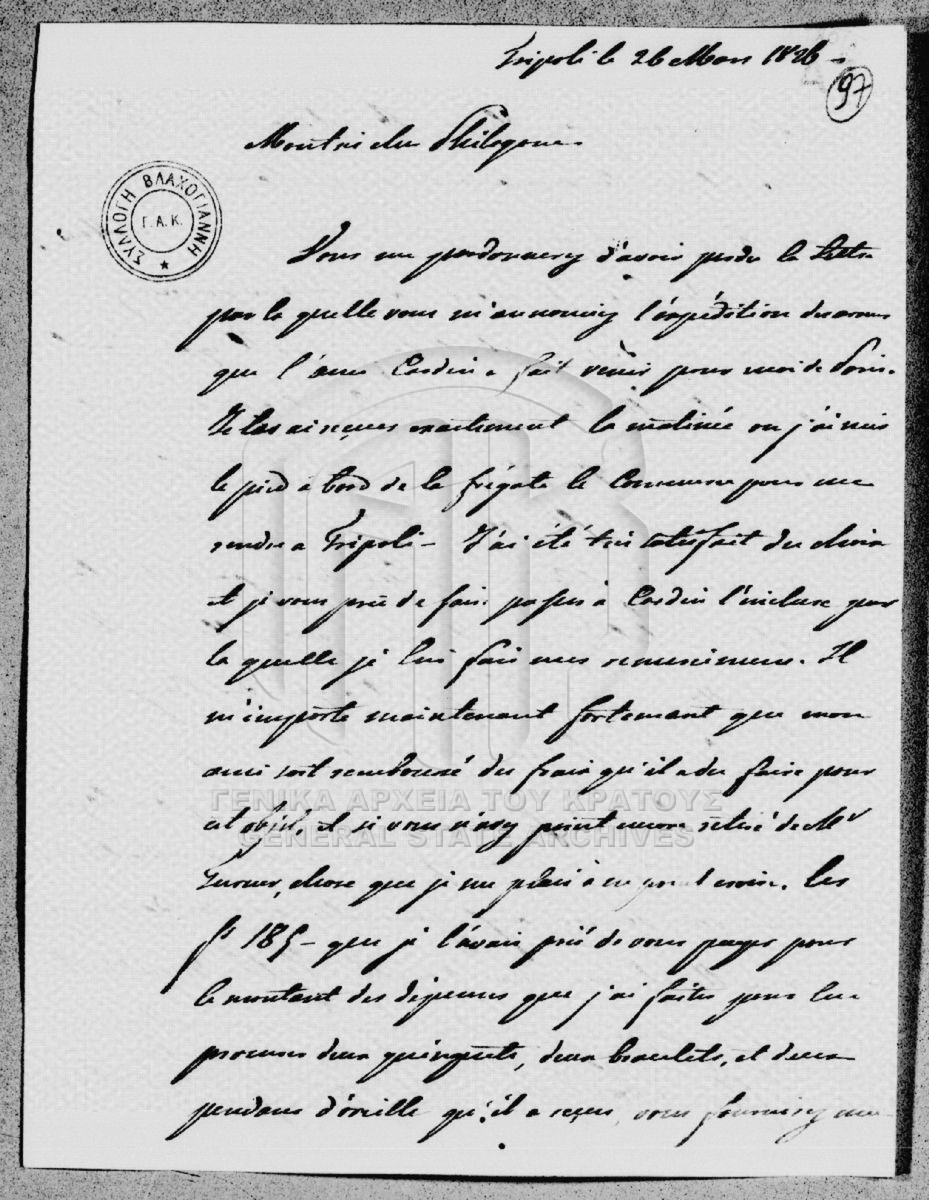 Tripoli le 26 Mars 1826 -
97
Mon très cher Philogone
ΣΥΛΛΟΓΗ ΒΛΑΧΟΓΙΑΝΝΗ
Γ.Α.Κ.
Vous me pardonnerez d'avoir perdu la lettre
par la quelle vous m'annonciez l'éxpédition des armes
que l'ami Cardin a fait venir pour moi de Paris.
Je les ai reçues exactement la matinée ou j'ai mis
le pied a bord de la frégate le pour me
rendre a Tripoli - J'ai été très satisfait du choix
et je vous prie de faire passer à Cardin l'incluse par
la quelle je lui fais mes remerciemens. Il
m'importe maintenant fortement que mon
ami soit remboursé des frais qu'il a du faire pour
cet objet, et si vous n'avez point encore retiré de Mr
Turner, chose que je me plais à ne point croire, les
185 - que je l'avais prié de vous payer pour
le montant des dépenses que j'ai faites pour lui
procurer deux quinquets, deux bracelets, et deux
pendans d'oreille qu'il a reçus, vous me
ΓΕΝΙΚΑ ΑΡΧΕΙΑ ΤΟΥ ΚΡΑΤΟΥΣ
GENERAL STATE ARCHIVES